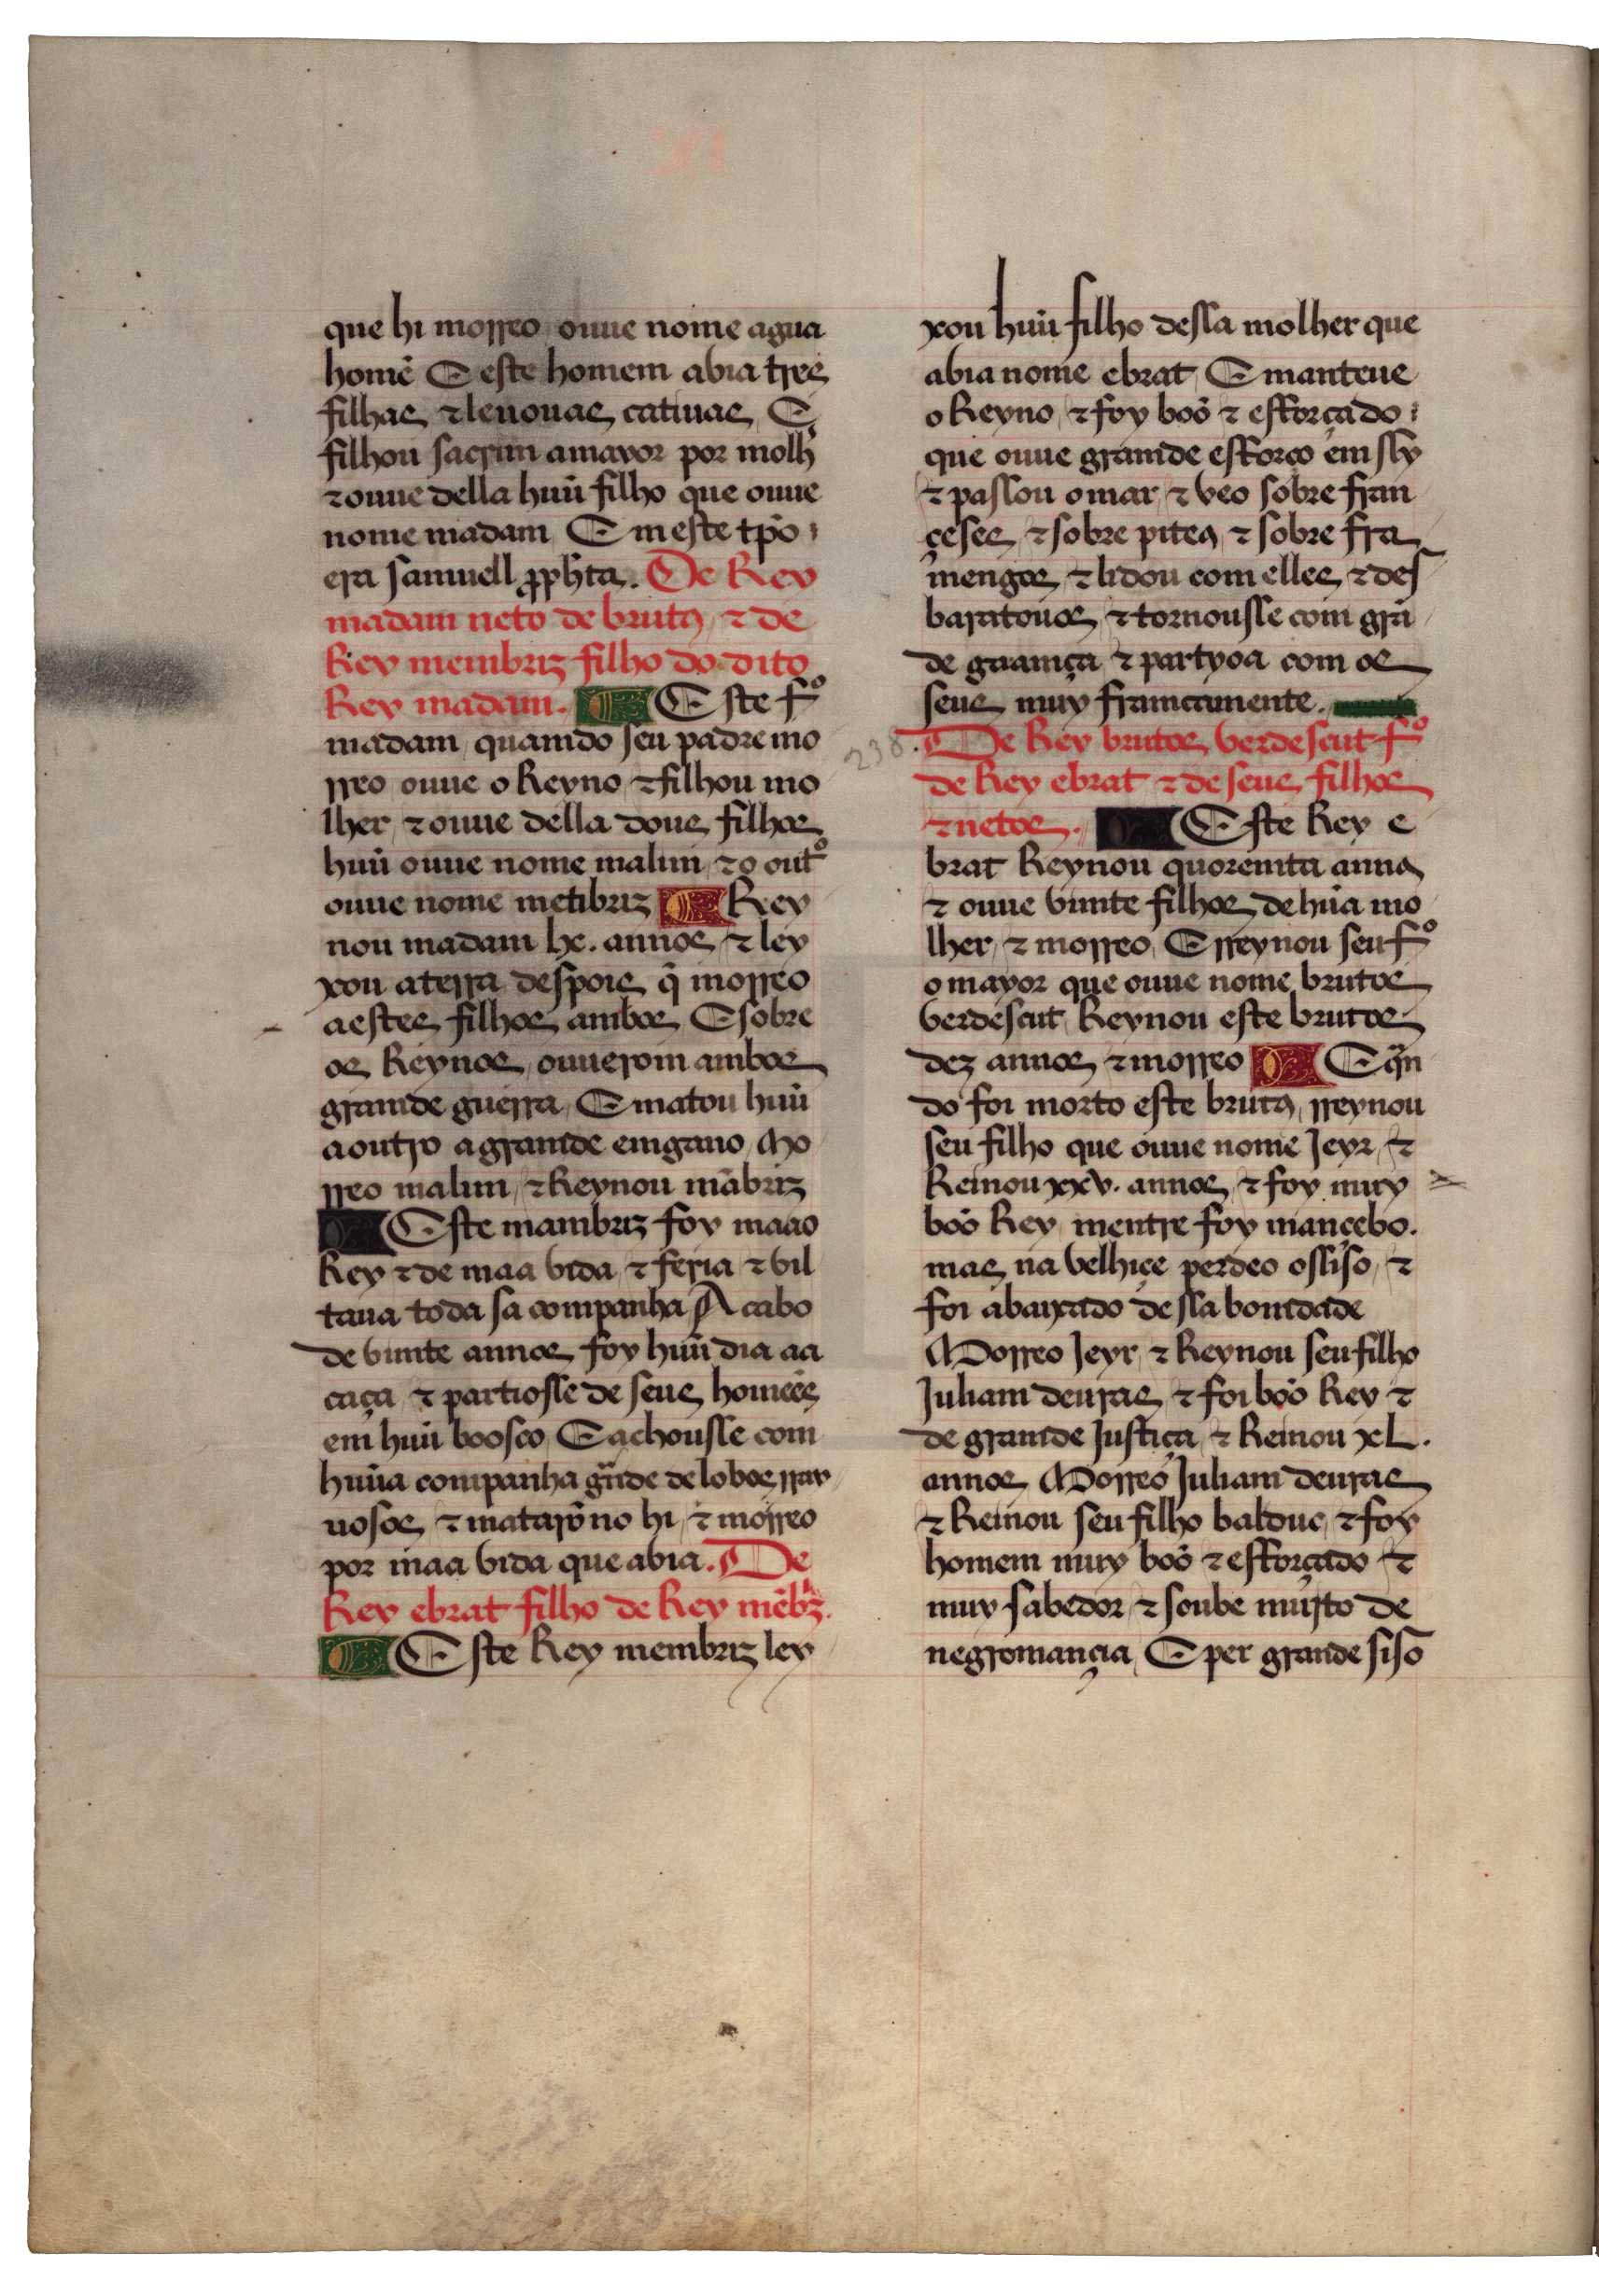 que hi morreo ouue nome agua
homẽ E este homem abia tres
filhas ⁊ leuouas catiuas E
filhou sacrim a mayor por molh̃
⁊ ouue della huũ filho que ouue
nome madam E em este tp̃o
era samuell ꝓph̃ta. De Rey
madam neto de brutꝯ ⁊ de
Rey membriz filho do dito
Rey madam. Este fº
madam quamdo seu padre mo
rreo ouue o Reyno ⁊ filhou mo
lher ⁊ ouue della dous filhos
huũ ouue nome malim ⁊ o outº
ouue nome metibriz Rey
nou madam lx. annos ⁊ ley
xou a terra despois q̃ morreo
a estes filhos ambos E sobre
os Reynos ouuerom ambos
gramde guerra E matou huũ
a outro a gramde emgano Mo
rreo malim ⁊ Reynou mãbriz
Este mambriz foy maao
Rey ⁊ de maa vida ⁊ feria ⁊ vil
taua toda sa companha A cabo
de vimte annos foy huũ dia aa
caça ⁊ partiosse de seus homeẽs
em huũ boosco E achousse com
huũa companha gñde de lobos rray
uosos ⁊ matarõno hi ⁊ morreo
por maa vida que abia. De
Rey ebrat filho de Rey mẽbz̃.
Este Rey membriz ley
xou huũ filho dessa molher que
abia nome ebrat E manteue
o Reyno ⁊ foy boõ ⁊ efforçado
que ouue gramde efforço em ssy
⁊ passou o mar ⁊ veo sobre fran
çeses ⁊ sobre piteꝯ ⁊ sobre fra
mengos ⁊ lidou com elles ⁊ des
baratouos ⁊ tornousse com grã
de guamça ⁊ partyoa com os
seus muy framcamente.
238. De Rey brutos verdescut fº
de Rey ebrat ⁊ de seus filhos
⁊ netos. Este Rey e
brat Reynou quoremta annꝯ
⁊ ouue vimte filhos de hũa mo
lher ⁊ morreo E rreynou seu fº
o mayor que ouue nome brutos
verdescut Reynou este brutos
dez annos ⁊ morreo E qñ
do foi morto este brutꝯ rreynou
seu filho que ouue nome Jeyr ⁊
Reinou xxv. annos ⁊ foy muy
boõ Rey mentre foy mançebo.
mas na velhiçe perdeo o ssiso ⁊
foi abaixado de ssa bomdade
Morreo Jeyr ⁊ Reynou seu filho
Juliam deuras ⁊ foi boõ Rey ⁊
de gramde Justiça ⁊ Reinou xL.
annos Morreo Juliam deuras
⁊ Reinou seu filho balduc ⁊ foy
homem muy boõ ⁊ efforçado ⁊
muy sabedor ⁊ soube muyto de
negromançia E per grande siso